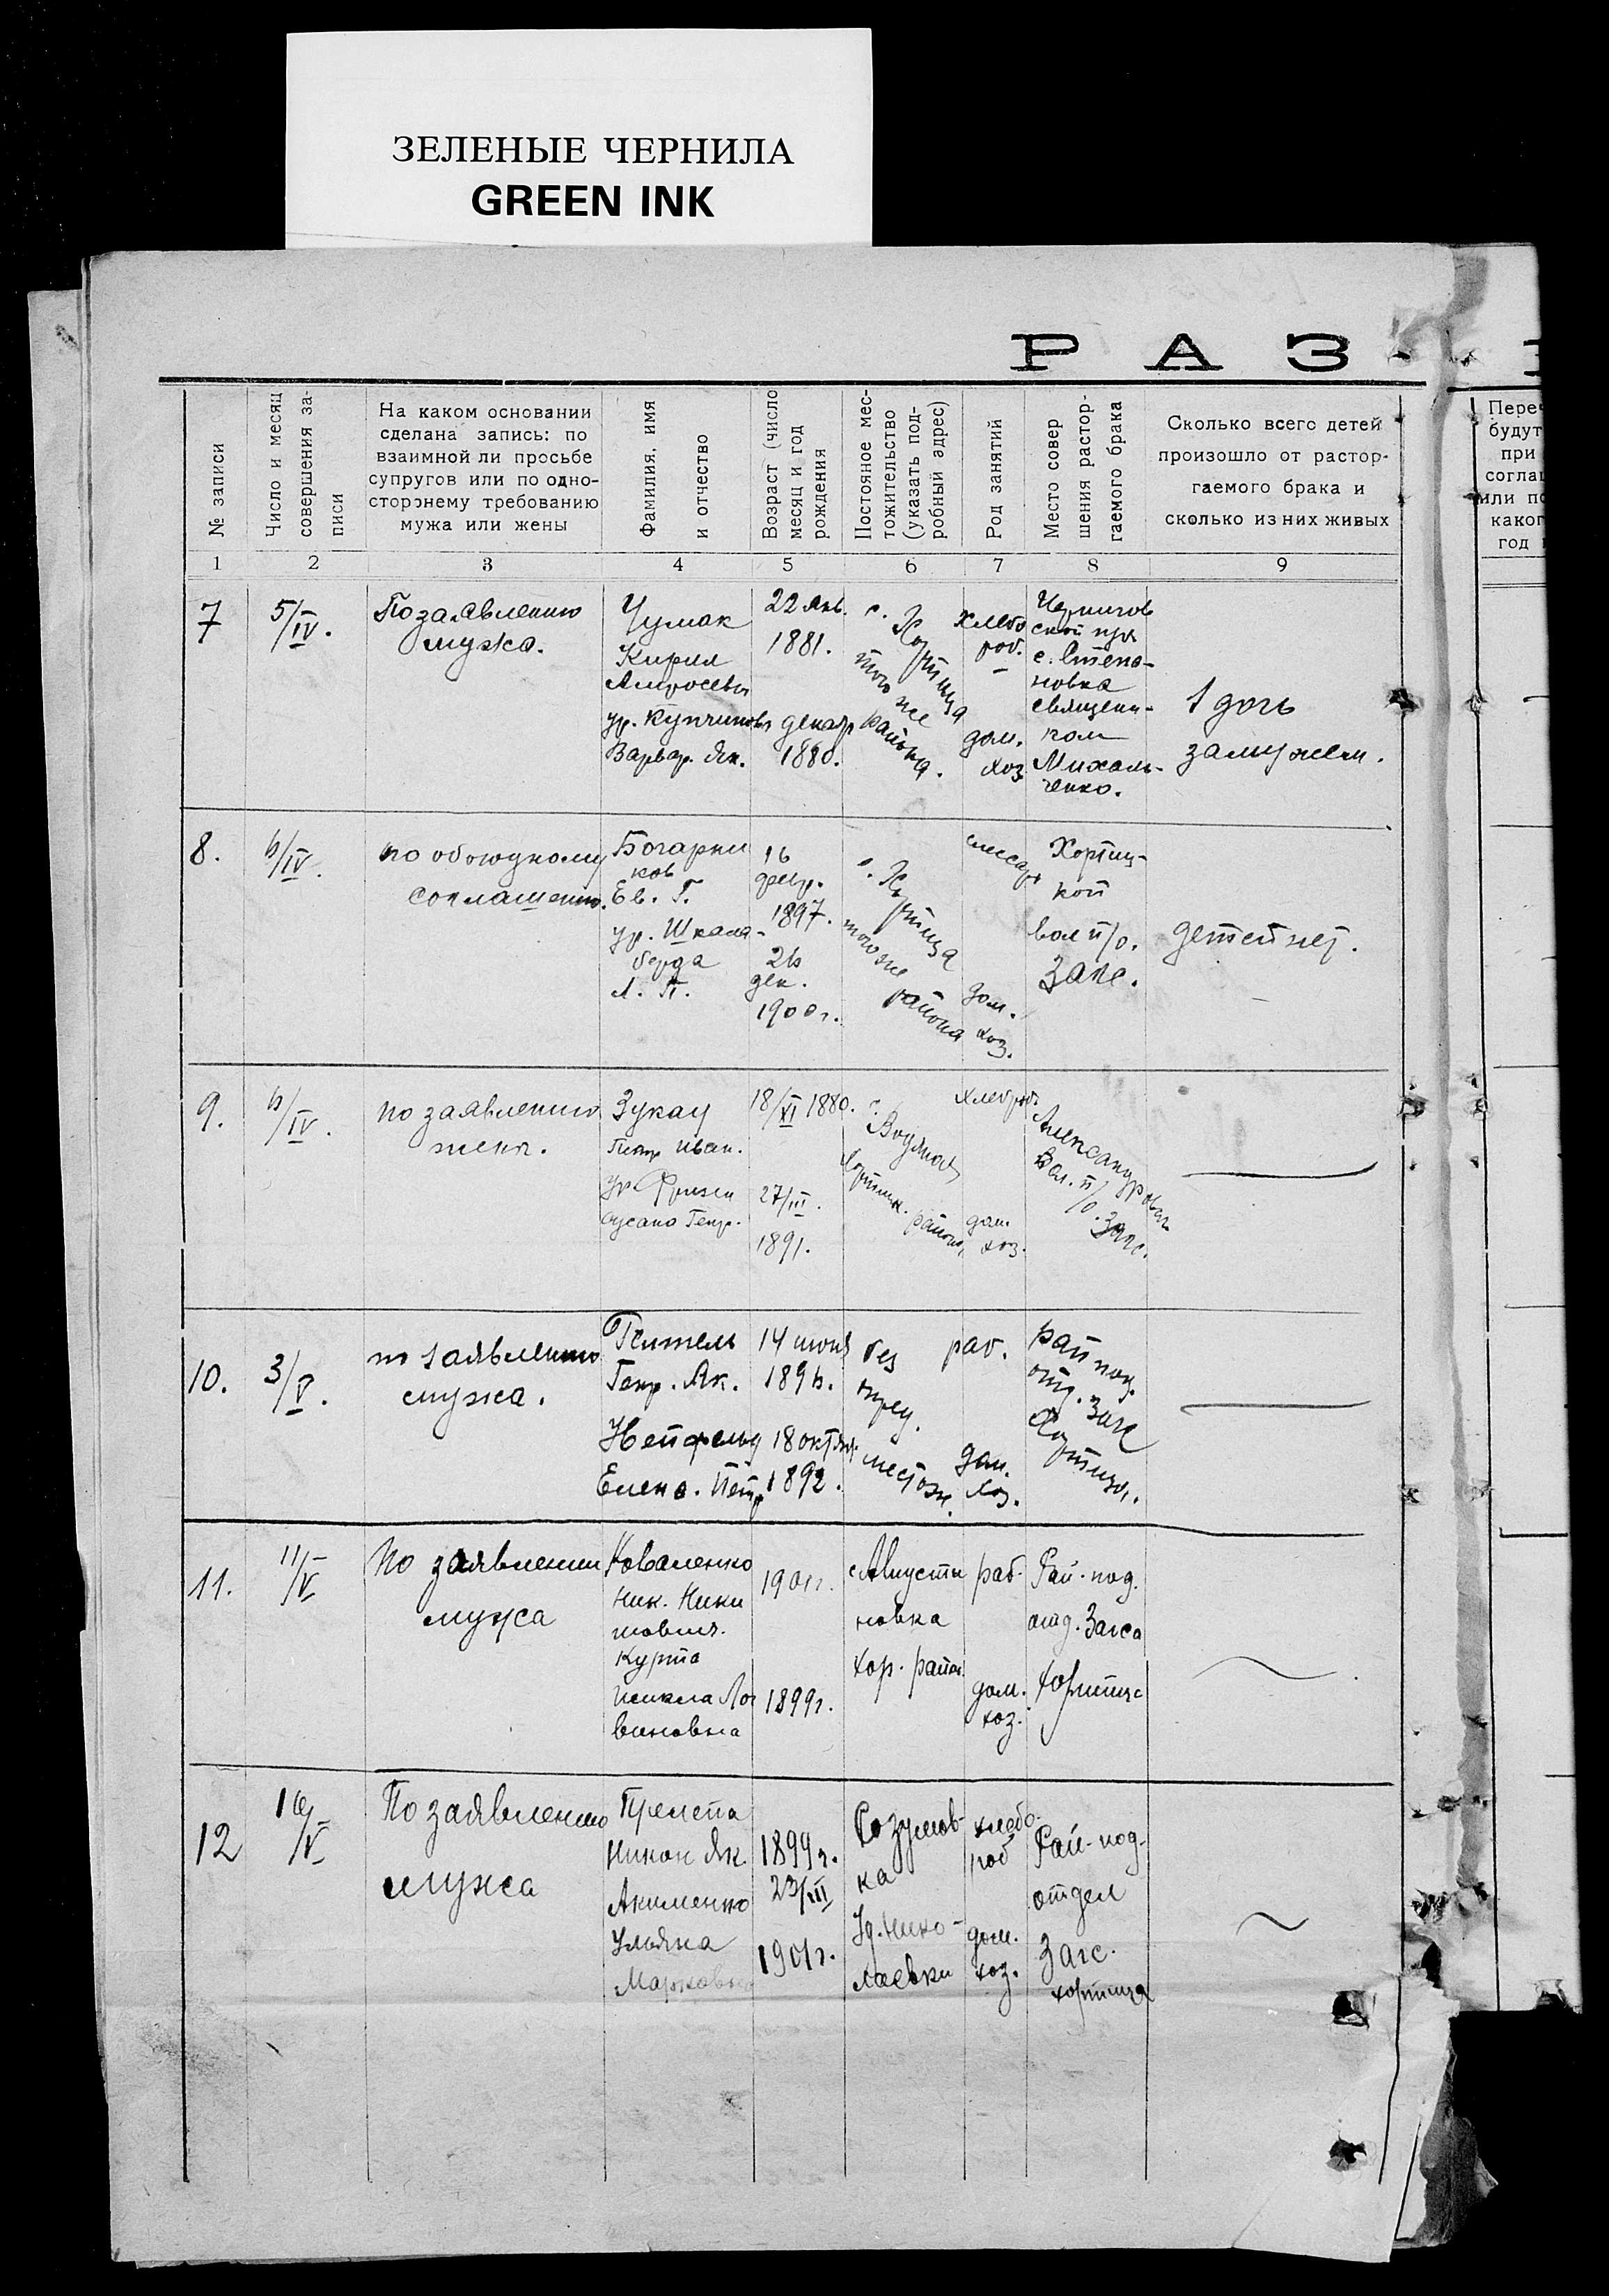 ЗЕЛЕНЫЕ ЧЕРНИЛА
GREEN INK
РАЗ
№ записи
Число и месяц
совершения за-
писи
На каком основании
сделана запись: по
взаимной ли просьбе
супругов или по одно-
стороннему требованию
мужа или жены
Фамилия, имя
и отчество
Возраст (число
месяц и год
рождения
Постояное мес-
тожительство
(указать под-
робный адрес)
Род занятий
Место совер
шения растор-
гаемого брака
Сколько всего детей
произошло от растор-
гаемого брака и
сколько из них живых
1
2
3
4
5
6
7
8
9
7
5/IV.
По заявлению
мужа.
Чумак
Кирил
ур.
Варвар. Як.
22 янв.
1881.
декабр
1880.
с. Хортица
того же
района.
хлебо
роб.
дом.
хоз
Чернигов
ской
с. Степа-
новка
священи-
ком
Михаль-
ченко.
1 дочь
замужем.
8.
6/IV.
по обоюдному
соглашению.
Богарни
ков
Ев. Г.
ур. Шкала-
берда
Л. П.
16
февр.
1897.
26
дек.
1900г.
с. Хортица
того же
района
слесарь
дом.
хоз.
Хортиц-
кой
вол п/о.
Загс.
детей нет.
9.
6/IV.
по заявлению
жены.
Зукау
Петр Иван.
ур. Фризен
Сусана Генр.
18/XI 1880.
27/III.
1891.
с.
Хортиц.
района
хлебороб
дом.
хоз.
Александровск
Вол. п/о. Загс.
10.
3/V.
по заявлению
мужа.
Генр. Як.
Нейфельд
Елена. Петр
14 июня
1896.
18 октябр.
1892.
без
опред.
местож.
раб.
дом.
хоз.
Рай под.
отд. Загс
Хортица.
11.
11/V
По заявлении
мужа
Коваленко
Ник. Ники
тович.
Курта
Лог
виновна
1901г.
1899г.
с Августи
новка
Хор. район
раб.
дом.
хоз.
Рай-под.
отд. Загса
Хортица
12
По заявлению
мужа
Никон Як
Акименко
Ульяна
Марковна
1899г.
23/III
1901г.
Розумов-
ка
Нико-
лаевки
хлебо-
роб
дом.
хоз.
Рай-под-
отдел
Загс.
Хортица
Переч
будут
при
соглаш
или по
каког
год